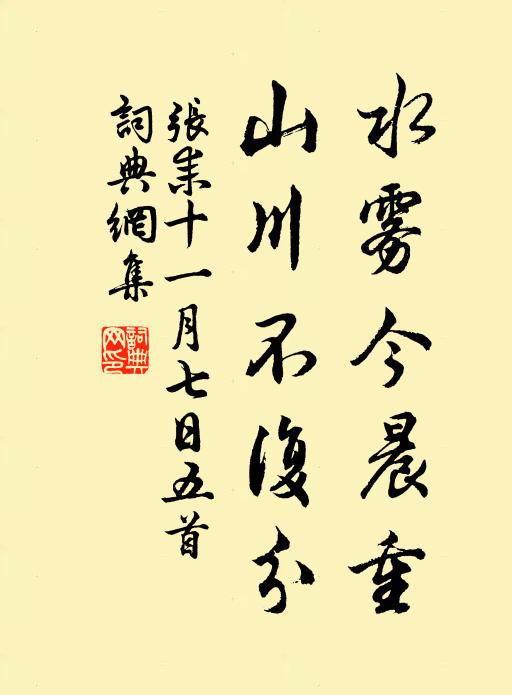 水雾今晨重
山川不復分
張耒十一月七日五首
詞典網集
詞典網印